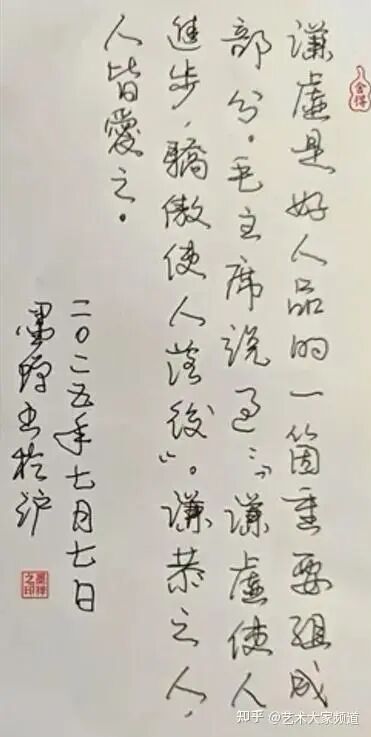 舍得
谦虚是好人品的一箇重要組成
部分。毛主席说过:“谦虚使人
進步,驕傲使人落後”。谦恭之人,
人皆愛之。
二〇二五年七月七日
墨书於沪
之印
知乎 @艺术大家频道